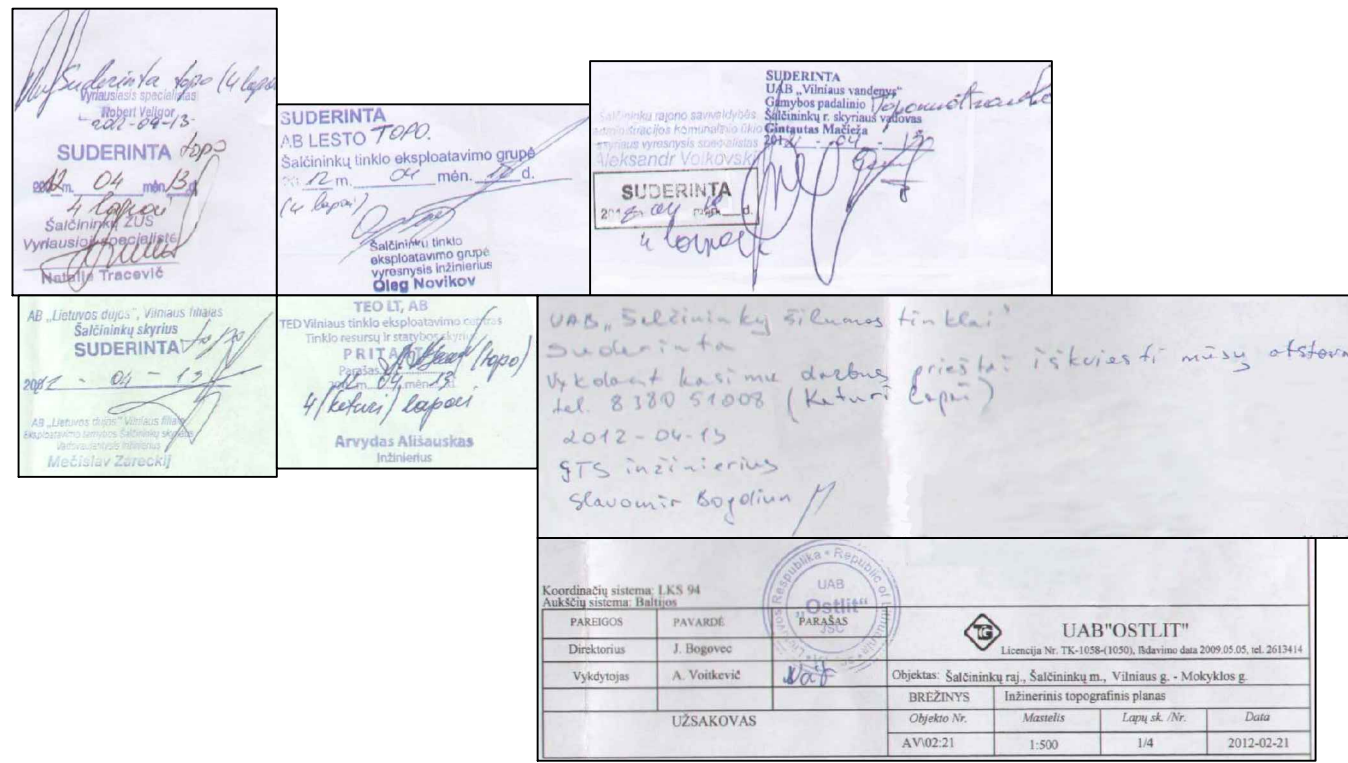 Suderinta topo (4 lapai
Vyriausiasis specialistas
Robert Veligor
2012-04-13
SUDERINTA topo
2012 m. 04 mėn. 13 d.
4 lapai
Šalčininkų ŽŪS
Vyriausioji specialistė
Natalja Tracevič
SUDERINTA
AB LESTO TOPO.
Šalčininkų tinklo eksploatavimo grupė
20 12 m. 04 mėn. d.
(4 lapai)
Šalčininkų tinklo
eksploatavimo grupė
vyresnysis inžinierius
Oleg Novikov
Šalčininkų rajono savivaldybės
administracijos komunalinio ūkio
skyriaus vyresnysis specialistas
Aleksandr Volkovski
SUDERINTA
04 mėn. d.
4 lapai
SUDERINTA
UAB „Vilniaus vandenys“
Gamybos padalinio
Šalčininkų r. skyriaus vadovas
Gintautas Mačieža
04
AB „Lietuvos dujos“, Vilniaus filialas
Šalčininkų skyrius
SUDERINTA topo
2012 - 04 - 13
AB „Lietuvos dujos“ Vilniaus filialo
Eksploatavimo tarnybos Šalčininkų skyriaus
Mečislav Zareckij
TEO LT, AB
TED Vilniaus tinklo eksploatavimo centras
Tinklo resursų ir statybos skyrius
(topo)
Parašas
m. 04 mėn. 13
4 (keturi) lapai
Arvydas Ališauskas
Inžinierius
UAB „Šalčininkų šilumos tinklai“
Suderinta
Vykdant kasimo darbus prieš tai iškviesti mūsų atstovą
tel. 8 380 51008 (Keturi lapai)
2012-04-13
ŠTS inžinierius
Slavomir Bogdiun
Koordinačių sistema: LKS 94
Aukščių sistema: Baltijos
Lietuvos Respublika • Republic of Lithuania
UAB
"Ostlit"
JSC
PAREIGOS PAVARDĖ PARAŠAS
Direktorius J. Bogovec
Vykdytojas A. Voitkevič
UŽSAKOVAS
TG
UAB"OSTLIT"
Licencija Nr. TK-1058-(1050), Išdavimo data 2009.05.05, tel. 2613414
Objektas: Šalčininkų raj., Šalčininkų m., Vilniaus g. - Mokyklos g.
BRĖŽINYS Inžinerinis topografinis planas
Objekto Nr. Mastelis Lapų sk. /Nr. Data
AV\02:21 1:500 1/4 2012-02-21